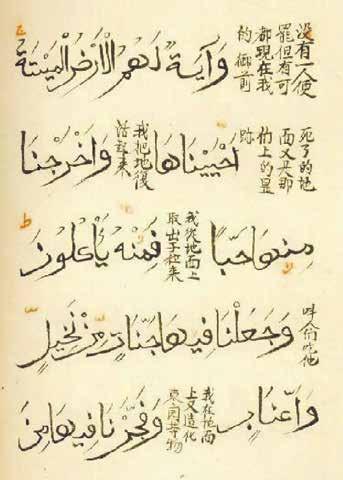 没有一人便
罷但有可
都現在我
的御前
وَآيَةٌ لَهُمُ الْأَرْضُ الْمَيْتَةُ
死了的地
面又
们上的显
跡
أَحْيَيْنَاهَا
我把地復
活起來
وَأَخْرَجْنَا
مِنْهَا حَبًّا
我從地面上
取出子粒来
فَمِنْهُ يَأْكُلُونَ
叫人们吃他
وَجَعَلْنَا فِيهَا جَنَّاتٍ مِنْ نَخِيلٍ
وَأَعْنَابٍ
我在地面
上又造化
園等物
وَفَجَّرْنَا فِيهَا مِنَ